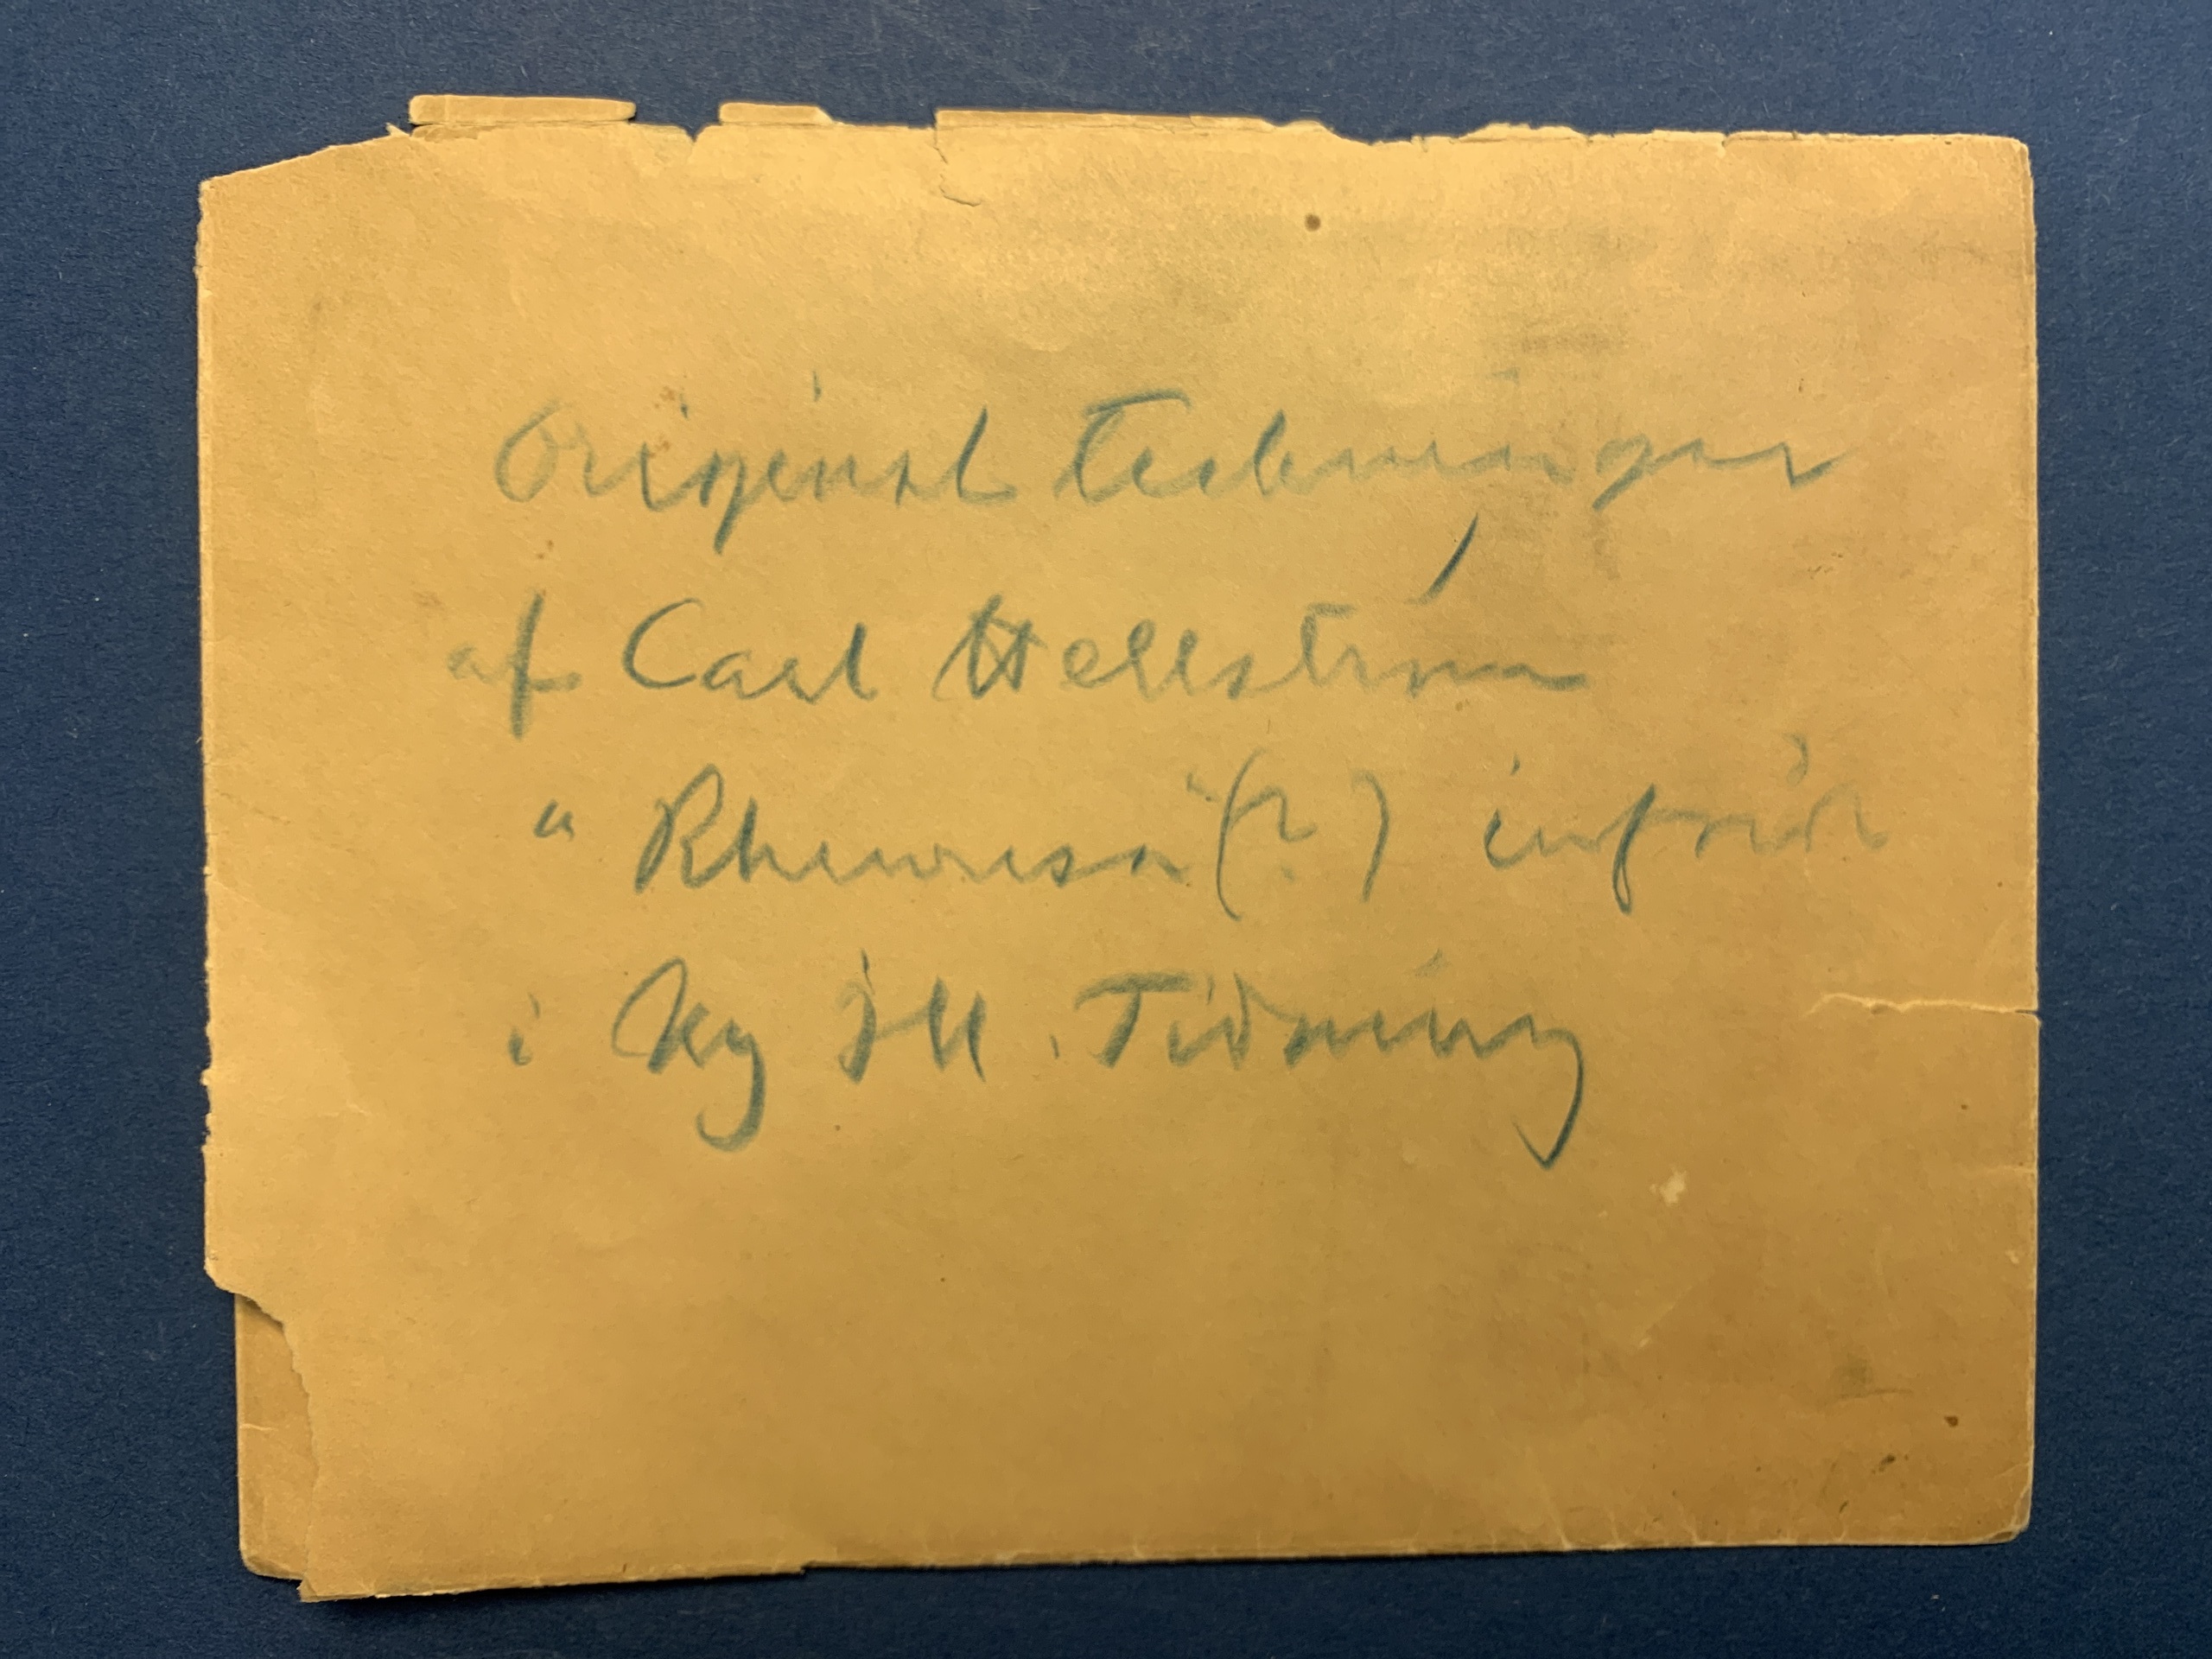 Original teckningar
af Carl Hellström
" (?) införda
i Ny Ill. Tidning